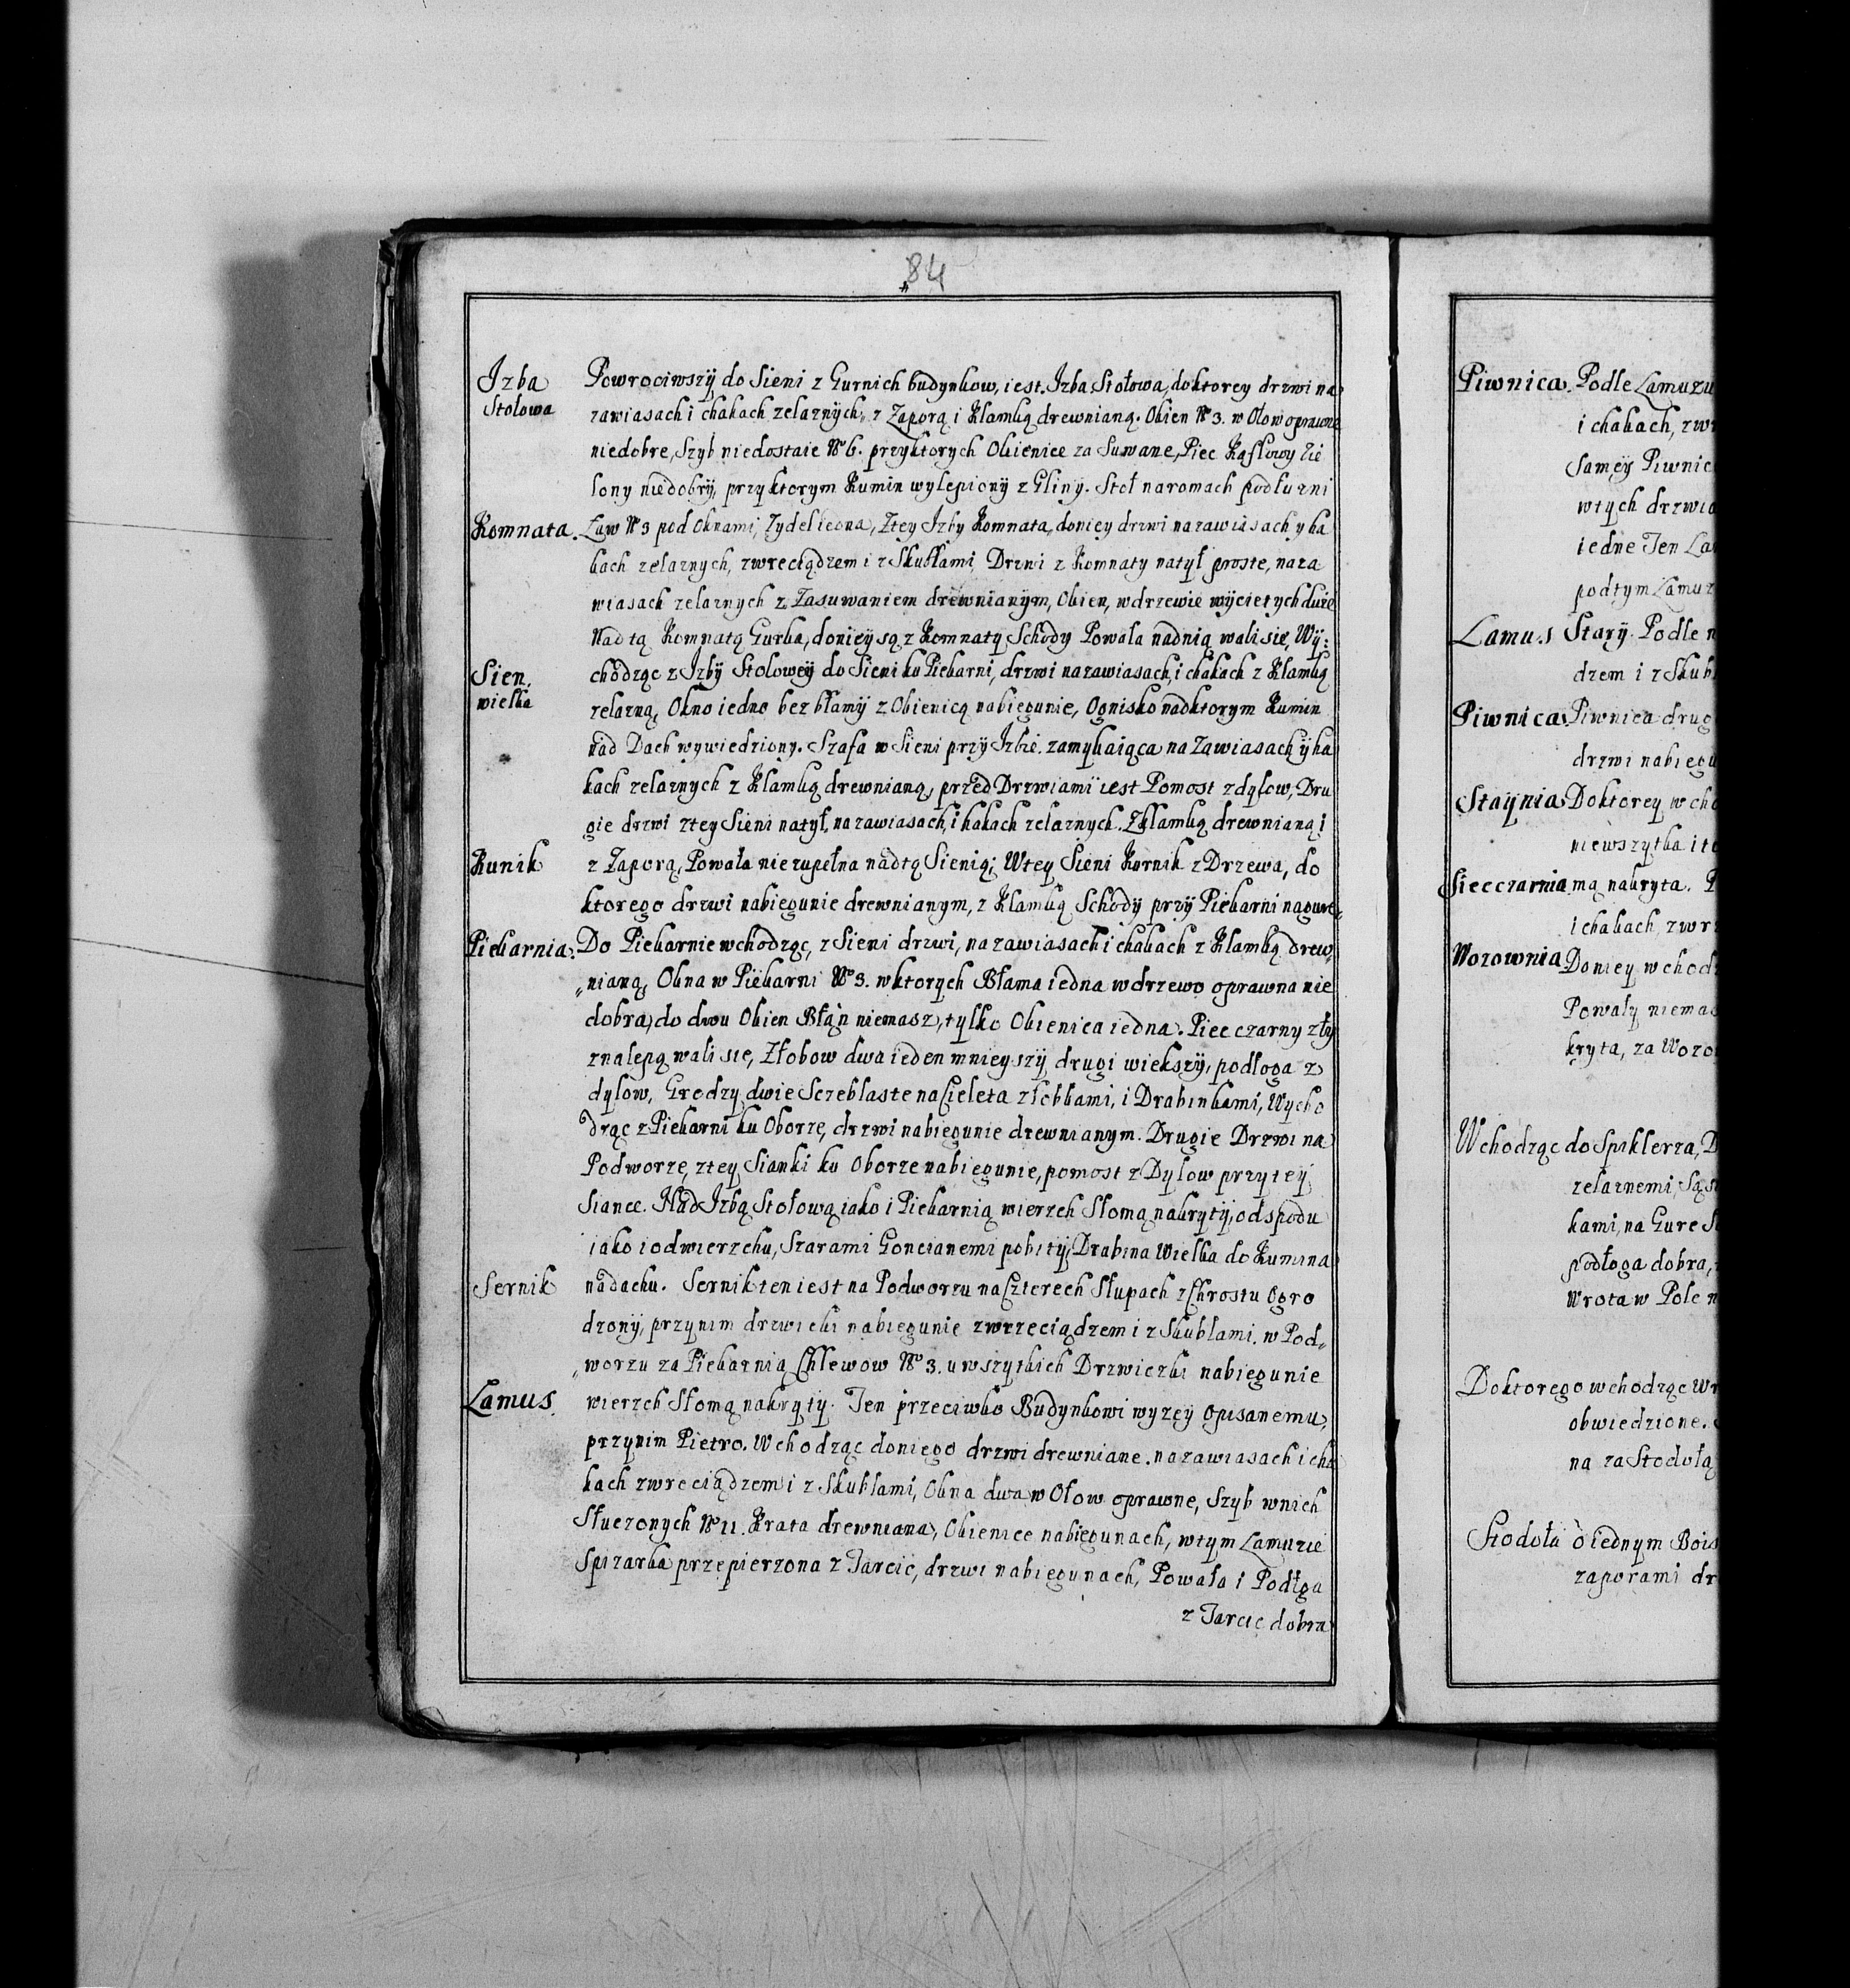 84
Izba Powrociwszÿ do Sieni z Gurnich budynkow, iest Izba Stołowa, doktorey drzwi na
Stolowa zawiasach i chakach zelaznÿch, z Zaporą i Klamką drewnianą. Okien No 3. w Ołow oprawne
niedobre, Szyb niedostaie No 6. przyktorych Okienice za Suwane, Piec Kaflowy Zie
lony niedobrÿ, przyktorym Kumin wylepionÿ z Glinÿ. Stoł naromach podłuzni
Komnata. Ław No 3 pod Oknami, Zydel iedna, Ztey Izby Komnata, doniey drzwi nazawiasach y ha
kach zelaznych, zwreciądzem i z Skubłami, Drzwi z Komnaty natÿł proste, naza
wiasach zelaznych z Zasuwaniem drewnianÿm, Okien, wdrzewie wÿcietych duże
Nad tą Komnatą Gurka, doniey są z Komnaty Schody Powała nadnią wali się, Wÿ:
Sien, chodząc z Izbÿ Stolowey do Sieni ku Piekarni, drzwi nazawiasach, i chakach z Klamką
wielka zelazną, Okno iedno bez błamÿ z Okienicą nabiegunie, Ognisko nadktorym Kumin
nad Dach wywiedziony. Szafa w Sieni przÿ Izbie zamykaiąca na Zawiasach ÿ ha
kach zelaznych z Klamką drewnianą, przed Drzwiami iest Pomost zdylow, Dru
gie drzwi ztey Sieni natył, nazawiasach, i hakach zelaznych. Z klamką drewnianą i
Kunik z Zaporą, Powała niezupełna nadtą Sienią; Wtey Sieni Kurnik z Drzewa, do
ktorego drzwi nabiegunie drewnianym, z Klamką Schody przÿ Piekarni nagure.
Piekarnia. Do Piekarnie wchodząc, z Sieni drzwi, nazawiasach i chakach z Klamką drew„
„nianą, Okna w Piekarni No 3. wktorych Błama iedna wdrzewo oprawna nie
dobra, do dwu Okien Błąn niemasz, tylko Okienica iedna. Piec czarny zły
znalepą wali się, Złobow dwa ieden mnieyszÿ drugi wiekszÿ, podłoga z
dylow, Grodzy dwie Sczeblaste na Cieleta złobkami, i Drabinkami, Wycho
dząc z Piekarni ku Oborze, drzwi nabiegunie drewnianym. Drugie Drzwi na
Podworze, ztey Sianki ku Oborze nabiegunie, pomost z Dylow przy tey
Siance. Nad Izbą Stołową iako i Piekarnią wierzch Słomą nakrytÿ, od spodu
iako i odwierzchu, Szarami Goncianemi pobitÿ, Drabina Wielka do Kumina
Sernik nadachu. Sernik ten iest na Podworzu na Czterech Słupach z Chrostu Ogro
dzonÿ, przynim drzwicki nabiegunie zwrzeciądzem i z Skubłami. w Pod„
„worzu za Piekarnią Chlewow No 3. uwszytkich Drzwiczki nabiegunie
Lamus. wierzch Słomą nakryty. Ten przeciwko Budynkowi wyzey opisanemu,
przynim Pietro. Wchodząc doniego drzwi drewniane. nazawiasach i cha
kach zwreciądzem i z Skubłami, Okna dwa w Ołow oprawne, Szyb wnich
Słuczonych No 11. Krata drewniana, Okienice nabiegunach, wtym Lamuzie
Spizarka przepierzona z Tarcic, drzwi nabiegunach, Powała i Podłga
z Tarcic dobra
Piwnica. Podle Lamuzu
i chakach, zwr
Sameÿ Piwnic
wtych drzwia
iedne Ten La
podtym Lamuz
Lamus Starÿ. Podle n
dzem i z Skub
Piwnica. Piwnica drug
drzwi nabiegu
Stajnia Doktorey wcho
niewszytka i to
Siecczarnia mą nakryta. P
i chakach, zwrz
Wozownia Doniey wchod
Powały niemas
kryta, za Wozo
Wchodząc do Spiklerza, D
zelaznemi, Sąs
kami, na Gure S
podłoga dobra,
Wrota w Pole n
Doktorego wchodząc Wr
obwiedzione.
na za Stodołą
Stodoła ò iednym Bois
zaporami dr